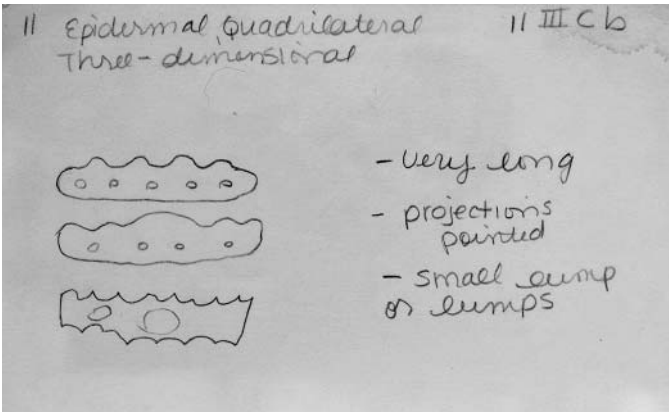 11 Epidermal Quadrilateral
Three-dimensional
11 III C b
- very long
- projections
pointed
- small lump
or lumps